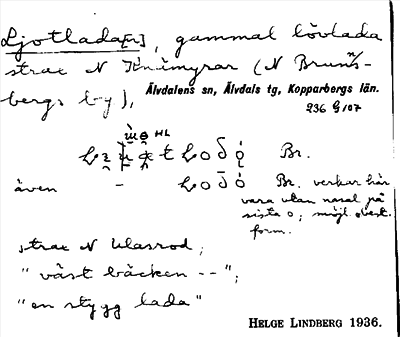 Ljotlada[n], gammal lövlada
strax N Finnmyrar (N Brunns-
bergs by),
Älvdalens sn, Älvdals tg, Kopparbergs län.
236 G 107
HL
Br.
även -
Br. verkar här
vara utan nasal på
sista o; möjl. obest.
form.
strax N Ulasrod;
"väst bäcken --";
"en stygg lada"
HELGE LINDBERG 1936.